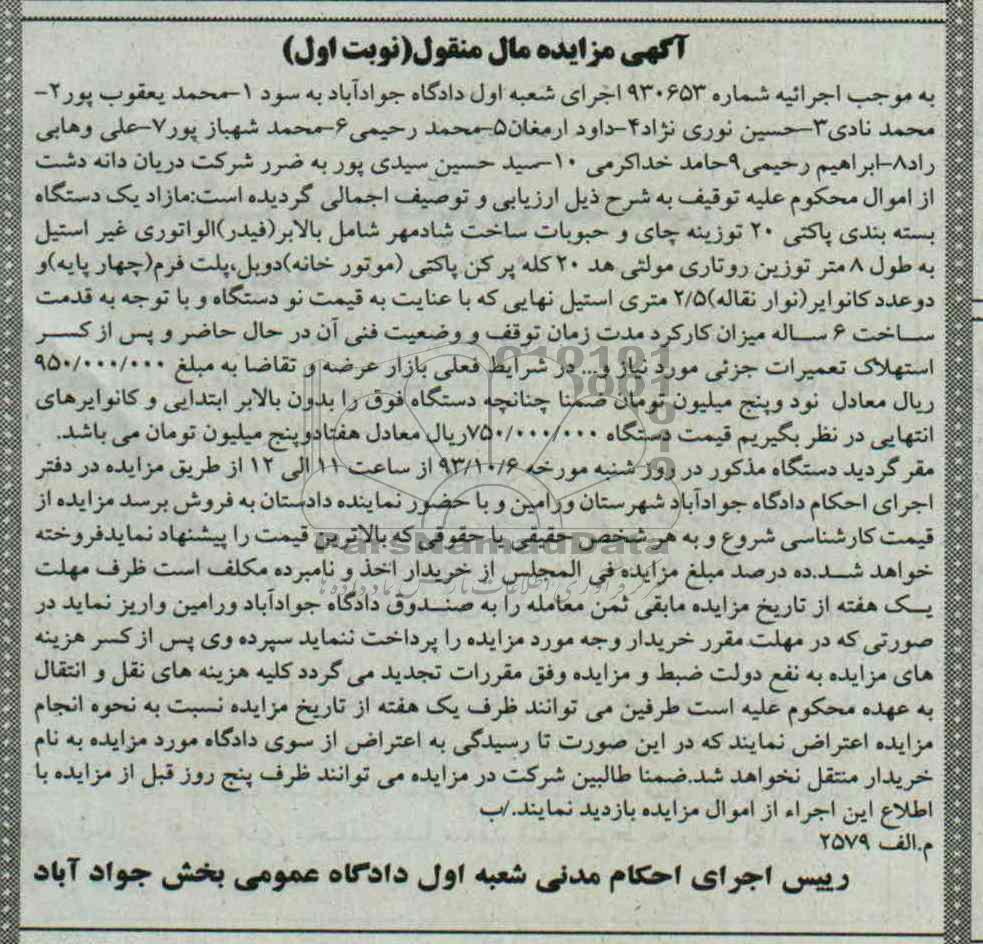 آگهی مزایده مال منقول(نوبت اول)
به موجب اجرائیه شماره ۹۳۰۶۵۳ اجرای شعبه اول دادگاه جوادآباد به سود ۱-محمد یعقوب پور۲-
محمد نادی۳-حسین نوری نژاد۴-داود ارمغان۵-محمد رحیمی۶-محمد شهباز پور۷-علی وهابی
راد۸-ابراهیم رحیمی۹حامد خداکرمی ۱۰-سید حسین سیدی پور به ضرر شرکت دریان دانه دشت
از اموال محکوم علیه توقیف به شرح ذیل ارزیابی و توصیف اجمالی گردیده است:مازاد یک دستگاه
بسته بندی پاکتی ۲۰ توزینه چای و حبوبات ساخت شادمهر شامل بالابر(فیدر)الواتوری غیر استیل
به طول ۸ متر توزین روتاری مولتی هد ۲۰ کله پر کن پاکتی (موتور خانه)دوبل،پلت فرم(چهار پایه)و
دوعدد کانوایر(نوار نقاله)۲/۵ متری استیل نهایی که با عنایت به قیمت نو دستگاه و با توجه به قدمت
ساخت ۶ ساله میزان کارکرد مدت زمان توقف و وضعیت فنی آن در حال حاضر و پس از کسر
استهلاک تعمیرات جزئی مورد نیاز و... در شرایط فعلی بازار عرضه و تقاضا به مبلغ ۹۵۰/۰۰۰/۰۰۰
ریال معادل نود وپنج میلیون تومان ضمنا چنانچه دستگاه فوق را بدون بالابر ابتدایی و کانوایرهای
انتهایی در نظر بگیریم قیمت دستگاه ۷۵۰/۰۰۰/۰۰۰ریال معادل هفتادوپنج میلیون تومان می باشد.
مقر گردید دستگاه مذکور در روز شنبه مورخه ۹۳/۱۰/۶ از ساعت ۱۱ الی ۱۲ از طریق مزایده در دفتر
اجرای احکام دادگاه جوادآباد شهرستان ورامین و با حضور نماینده دادستان به فروش برسد مزایده از
قیمت کارشناسی شروع و به هر شخص حقیقی یا حقوقی که بالاترین قیمت را پیشنهاد نمایدفروخته
خواهد شد.ده درصد مبلغ مزایده فی المجلس از خریدار اخذ و نامبرده مکلف است ظرف مهلت
یک هفته از تاریخ مزایده مابقی ثمن معامله را به صندوق دادگاه جوادآباد ورامین واریز نماید در
صورتی که در مهلت مقرر خریدار وجه مورد مزایده را پرداخت ننماید سپرده وی پس از کسر هزینه
های مزایده به نفع دولت ضبط و مزایده وفق مقررات تجدید می گردد کلیه هزینه های نقل و انتقال
به عهده محکوم علیه است طرفین می توانند ظرف یک هفته از تاریخ مزایده نسبت به نحوه انجام
مزایده اعتراض نمایند که در این صورت تا رسیدگی به اعتراض از سوی دادگاه مورد مزایده به نام
خریدار منتقل نخواهد شد.ضمنا طالبین شرکت در مزایده می توانند ظرف پنج روز قبل از مزایده با
اطلاع این اجراء از اموال مزایده بازدید نمایند./ب
م.الف ۲۵۷۹
رییس اجرای احکام مدنی شعبه اول دادگاه عمومی بخش جواد آباد
ParsNamadData